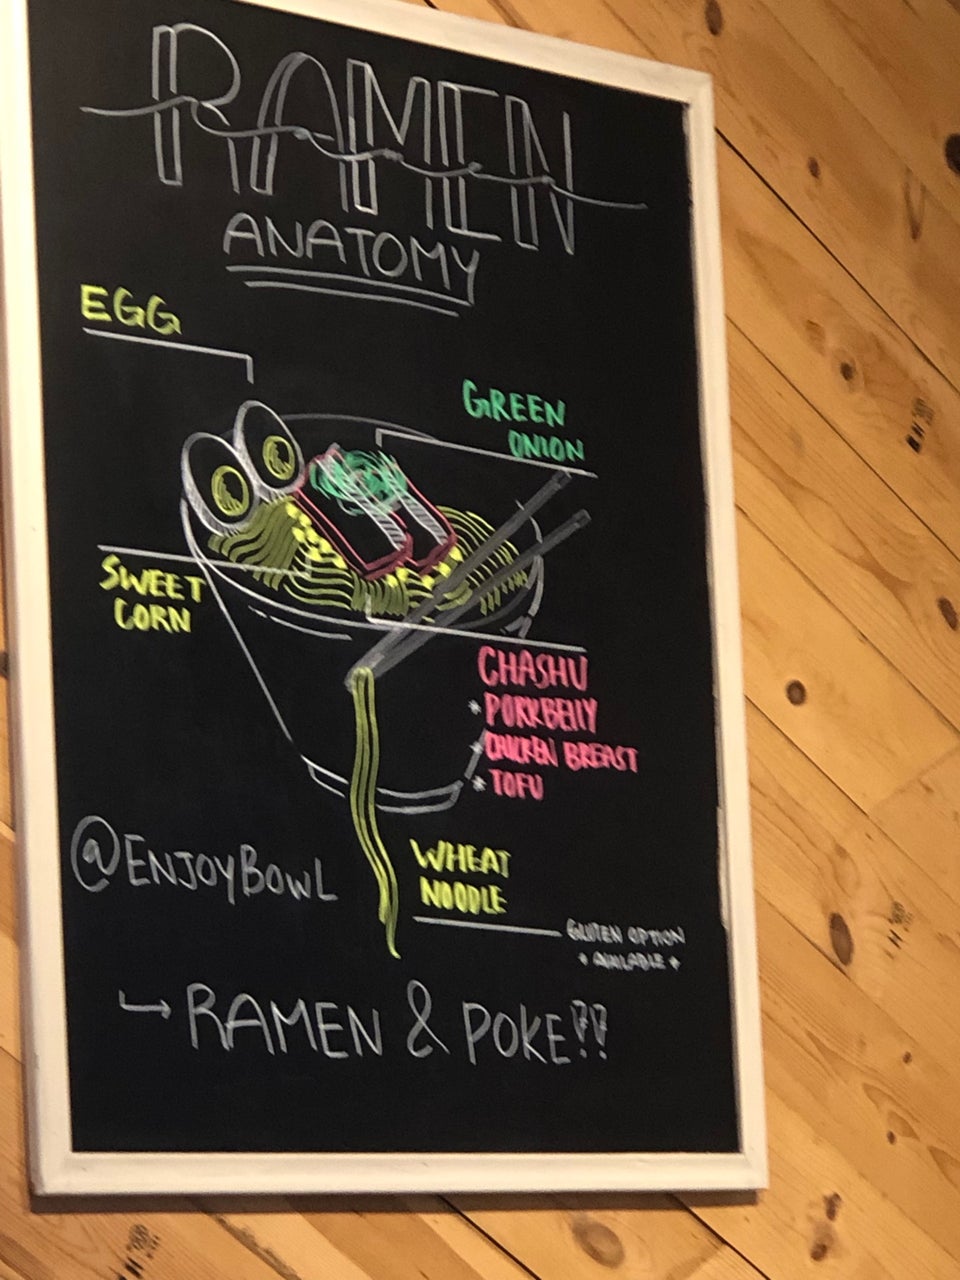 RAMEN
ANATOMY
EGG
GREEN
ONION
SWEET
CORN
CHASHU
* PORKBELLY
* CHICKEN BREAST
* TOFU
@ENJOYBOWL
WHEAT
NOODLE
GLUTEN OPTION
* AVAILABLE *
→ RAMEN & POKE!?